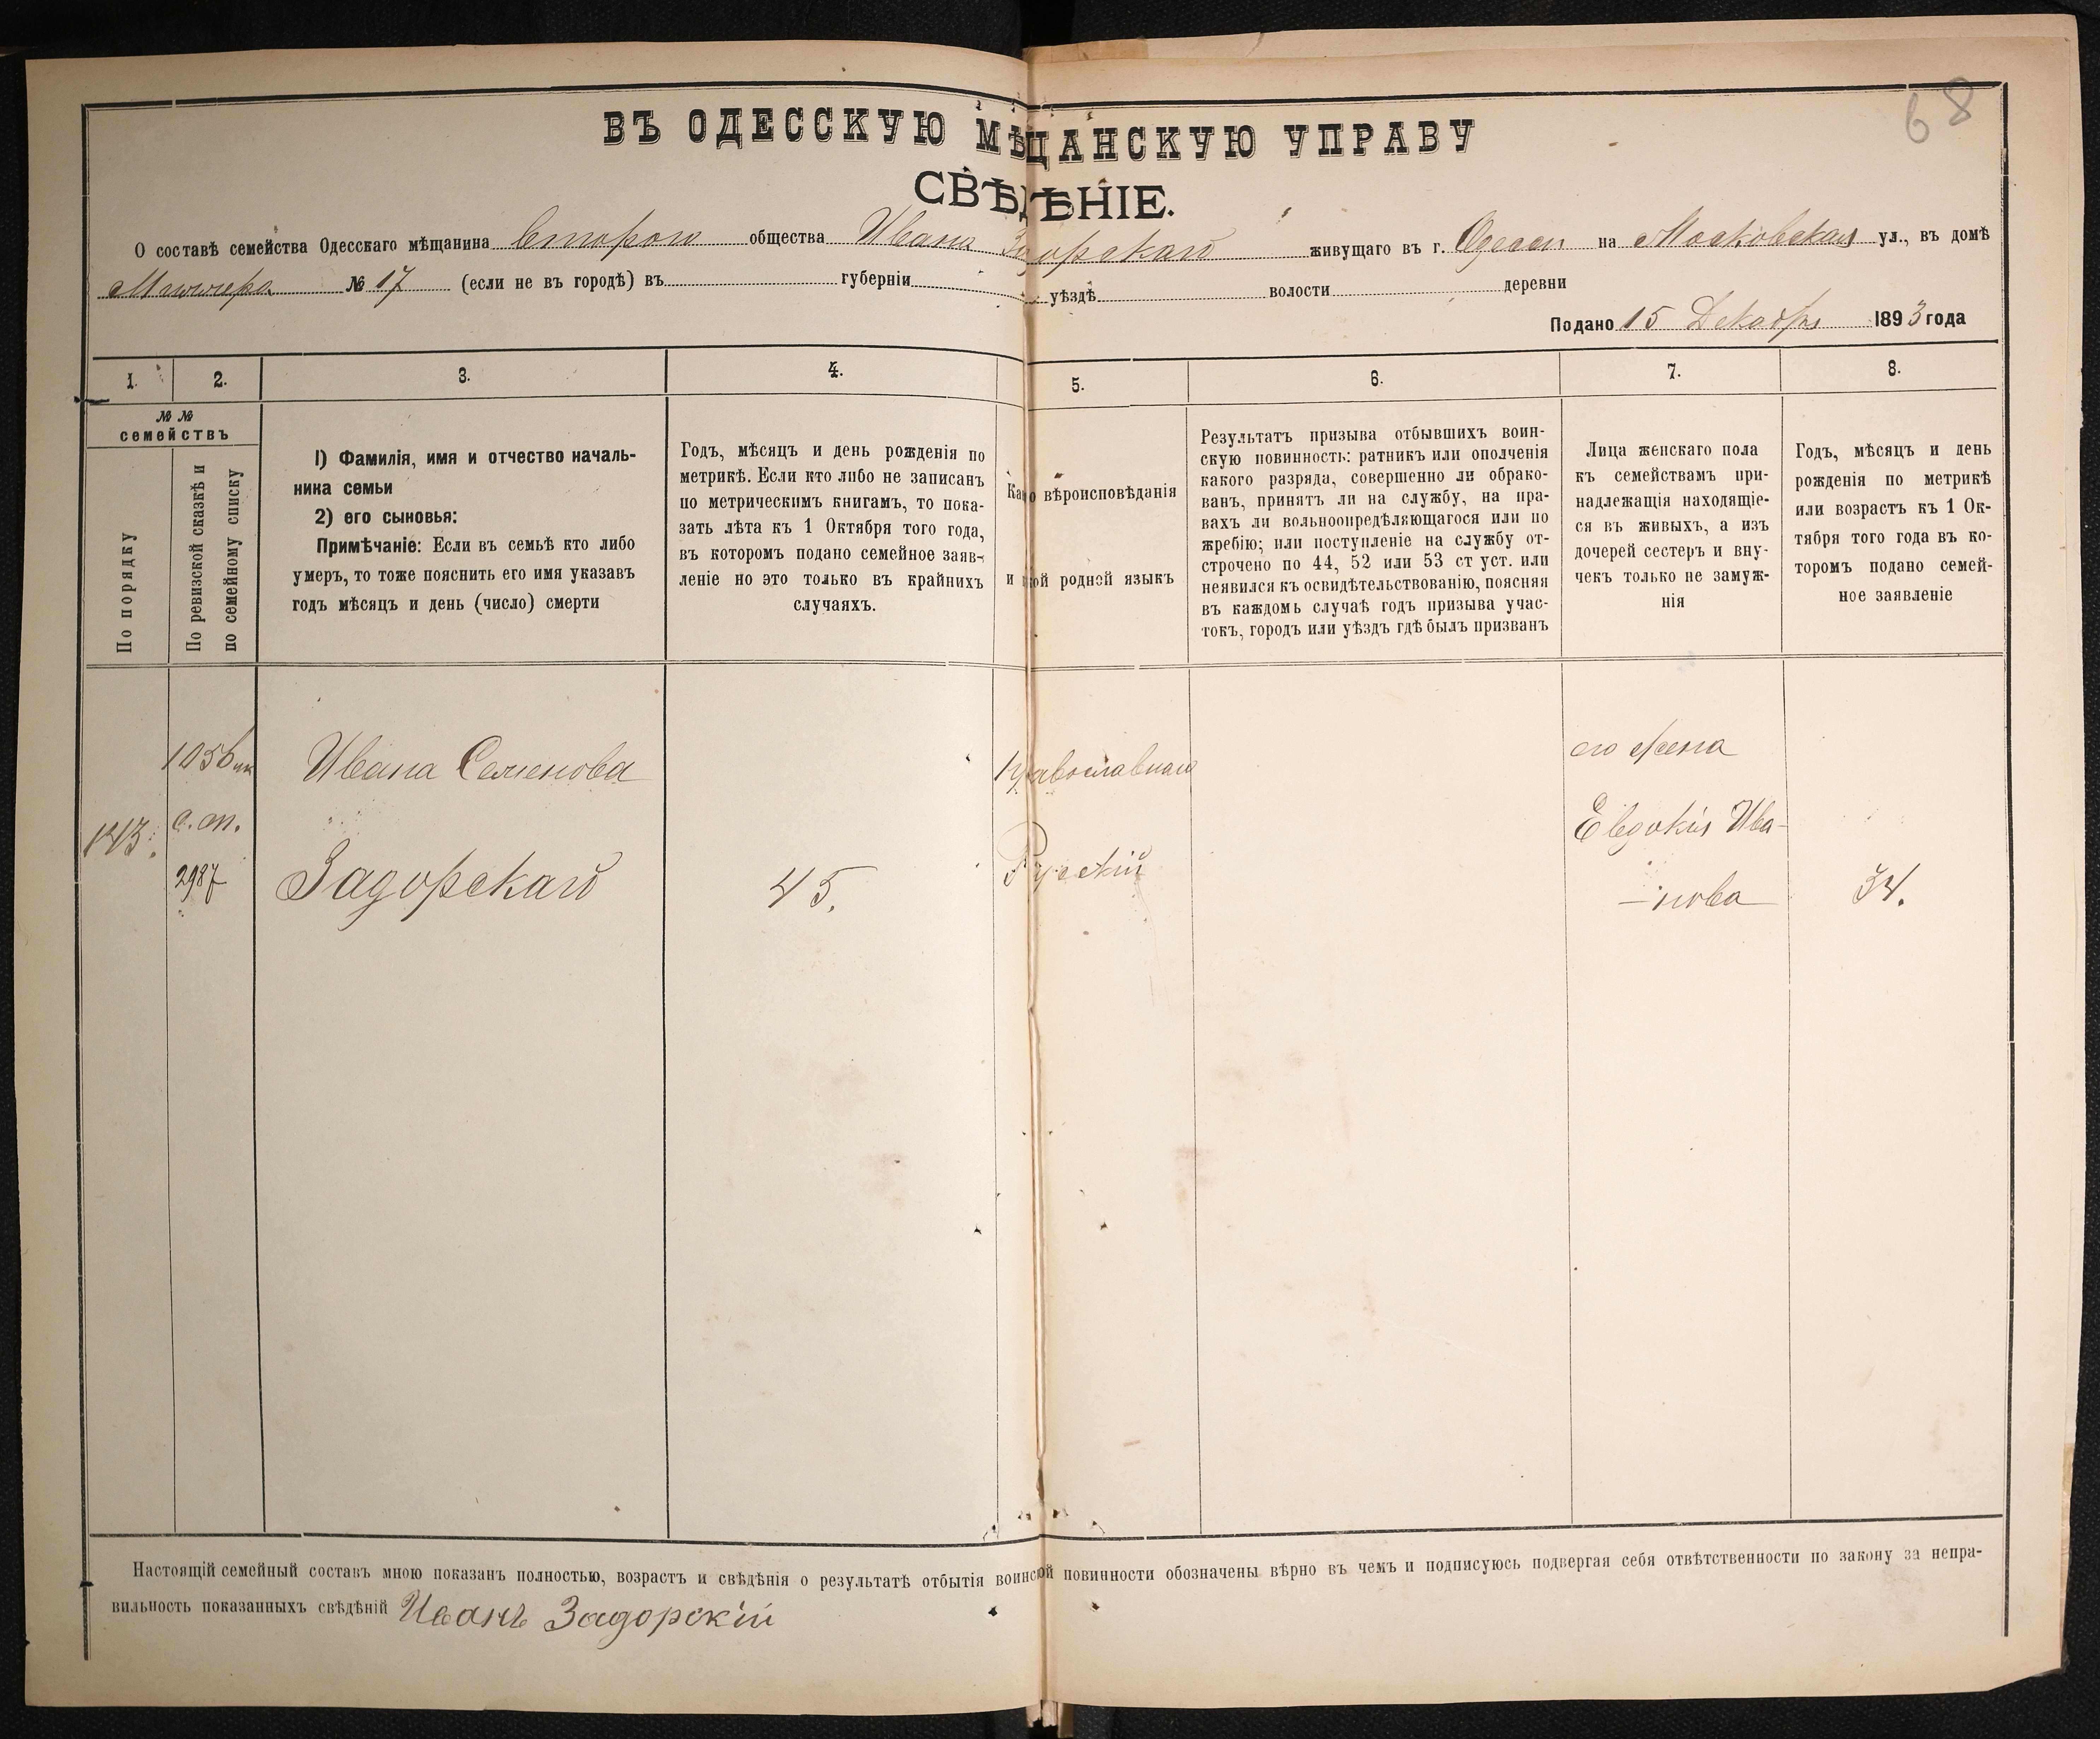 68
ВЪ ОДЕССКУЮ МѢЩАНСКУЮ УПРАВУ
СВѢДѢНІЕ.
О составѣ семейства Одесскаго мѣщанина Второго общества Ивана Задорскаго живущаго въ г. Одессы на Московская ул., въ домѣ
№ 17 (если не въ городѣ) въ губерніи уѣздѣ волости деревни
Подано 15 Декабря 1893 года
1. 2. 3. 4. 5. 6. 7. 8.
№ №
семействъ
По порядку
По ревизской сказкѣ и
по семейному списку
1) Фамилія, имя и отчество началь-
ника семьи
2) его сыновья:
Примѣчаніе: Если въ семьѣ кто либо
умеръ, то тоже пояснить его имя указавъ
годъ мѣсяцъ и день (число) смерти
Годъ, мѣсяцъ и день рожденія по
метрикѣ. Если кто либо не записанъ
по метрическимъ книгамъ, то пока-
зать лѣта къ 1 Октября того года,
въ которомъ подано семейное заяв-
леніе но это только въ крайнихъ
случаяхъ.
Како вѣроисповѣданія
и кой родной языкъ
Результатъ призыва отбывшихъ воин-
скую повинность: ратникъ или ополченія
какого разряда, совершенно ли обрако-
ванъ, принятъ ли на службу, на пра-
вахъ ли вольноопредѣляющагося или по
жребію; или поступленіе на службу от-
строчено по 44, 52 или 53 ст уст. или
неявился къ освидѣтельствованію, поясняя
въ каждомъ случаѣ годъ призыва учас-
токъ, городъ или уѣздъ гдѣ былъ призванъ
Лица женскаго пола
къ семействамъ при-
надлежащія находящіе-
ся въ живыхъ, а изъ
дочерей сестеръ и вну-
чекъ только не замуж-
нія
Годъ, мѣсяцъ и день
рожденія по метрикѣ
или возрастъ къ 1 Ок-
тября того года въ ко-
торомъ подано семей-
ное заявленіе
1056 Ивана Семенова Православнаго его жена
143. с. сп. Евдокія Ива-
2987 Задорскаго 45. Русскій -нова 34.
Настоящій семейный составъ мною показанъ полностью, возрастъ и свѣдѣнія о результатѣ отбытія воинской повинности обозначены вѣрно въ чемъ и подписуюсь подвергая себя отвѣтственности по закону за непра-
вильность показанныхъ свѣдѣній Иванъ Задорскій